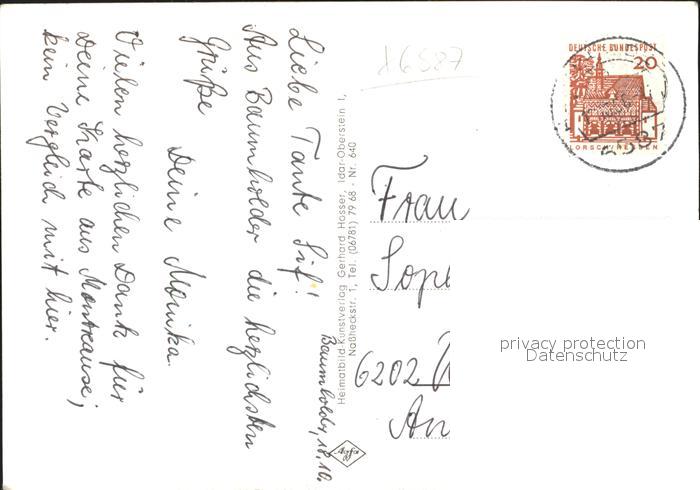 Baumholder, 18.10.
Liebe Tante Sif!
Aus Baumholder die herzlichsten
Grüße
Deine Monika.
Vielen herzlichen Dank für
Deine Karte aus
kein Vergleich mit hier.
Heimatbild-Kunstverlag Gerhard Hosser, Idar-Oberstein 1,
Naßheckstr. 1, Tel. (06781) 79 68 · Nr. 640
Agfa
16587
DEUTSCHE BUNDESPOST
20
LORSCH/HESSEN
Frau
6202
privacy protection
Datenschutz